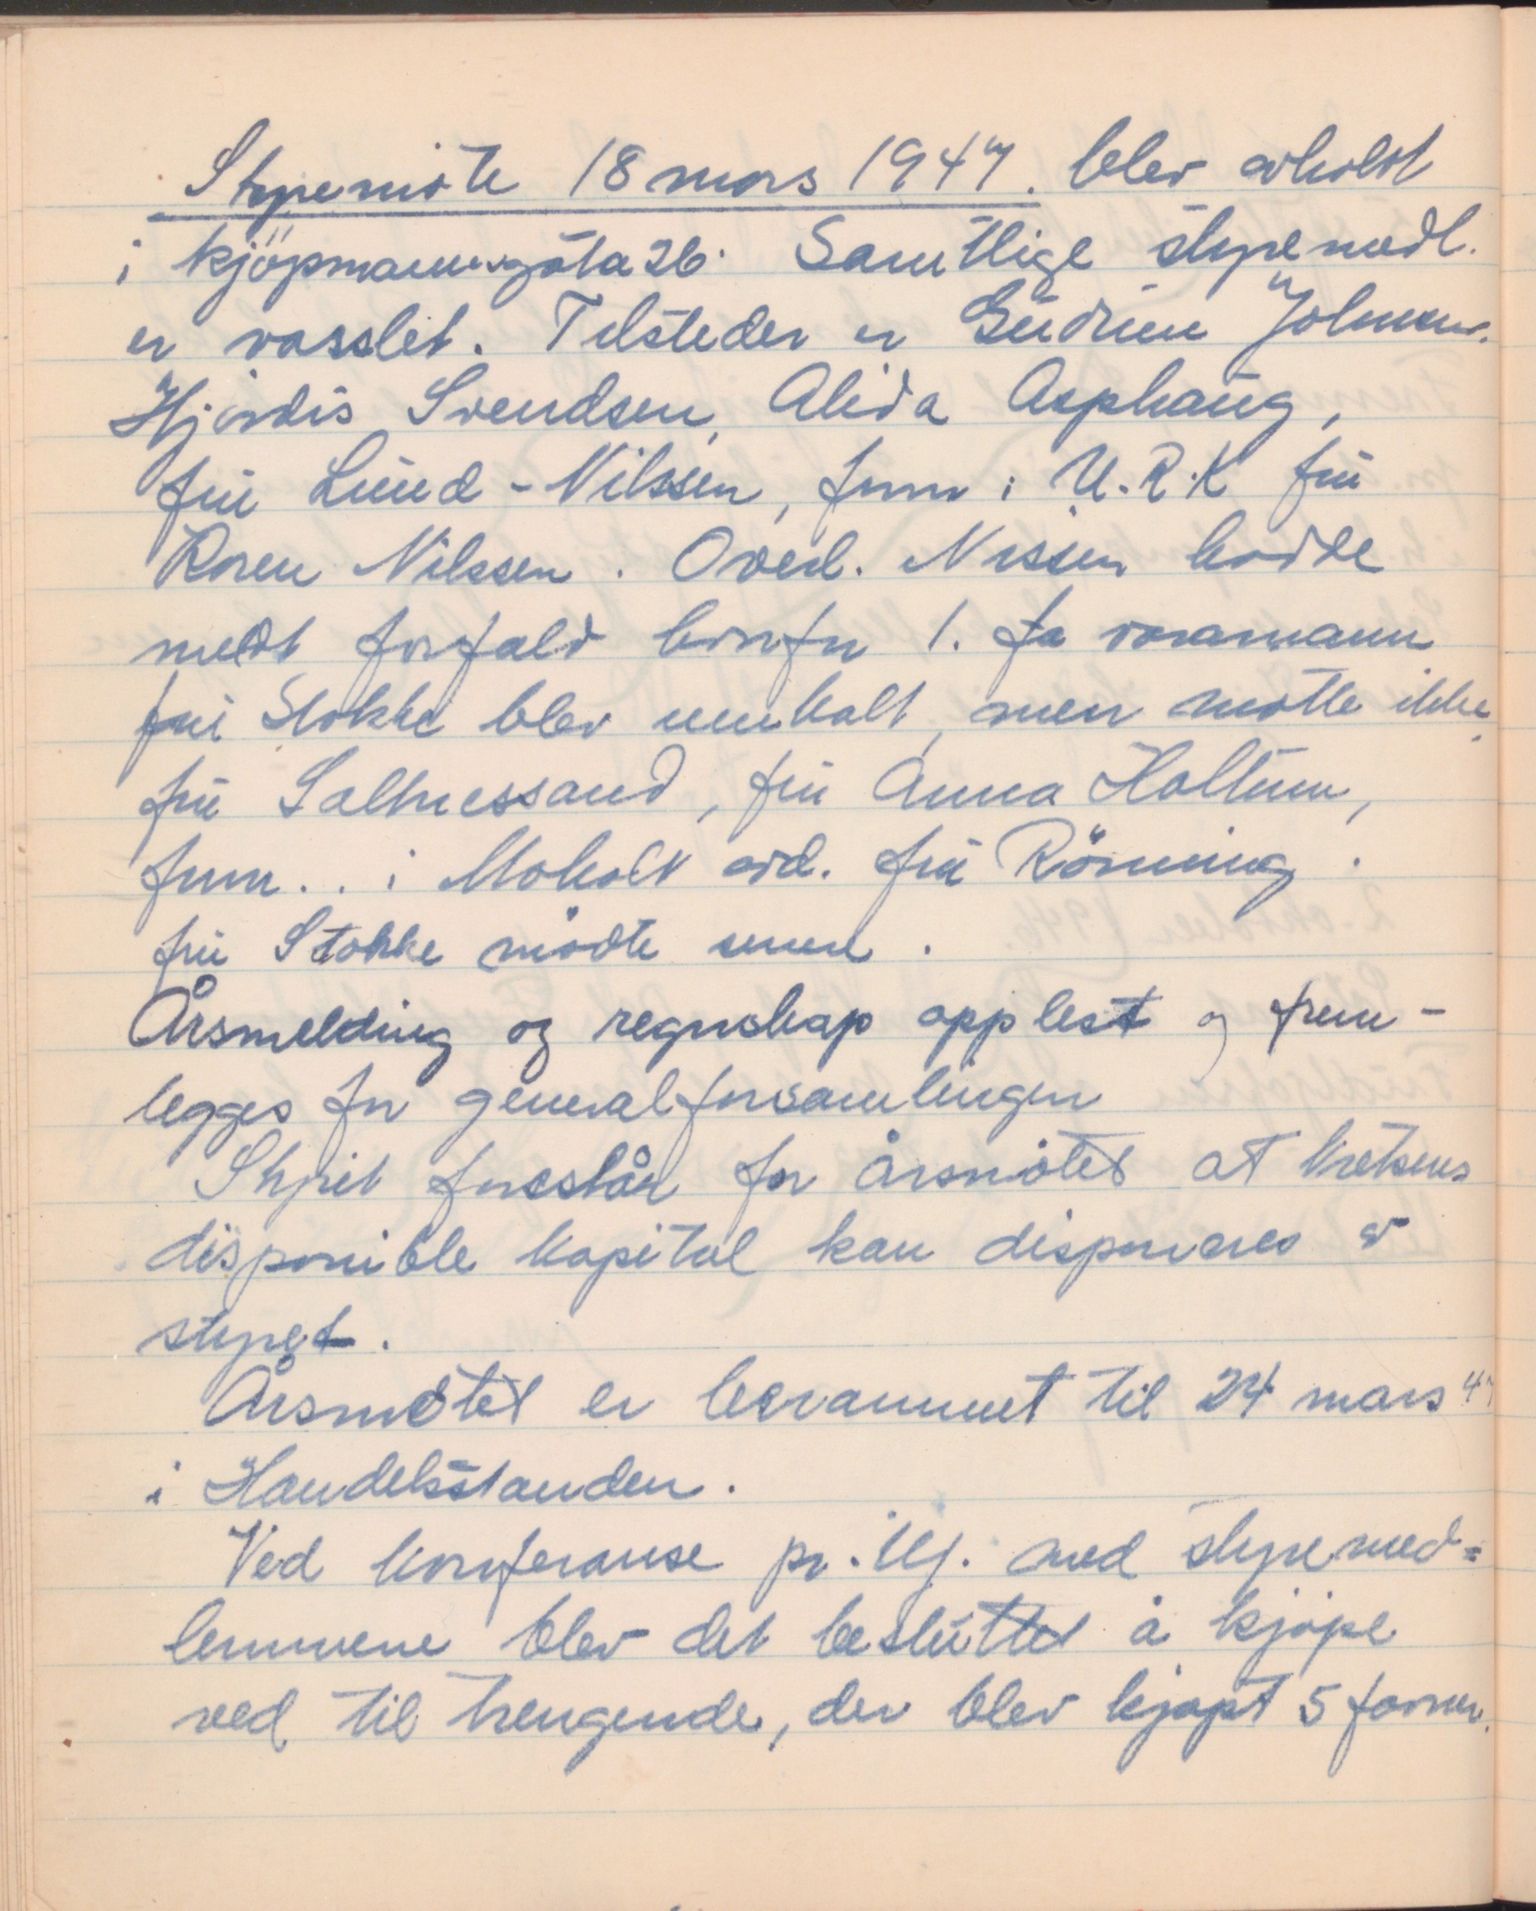 Styremöte 18 mars 1947. blev avholdt
i kjöpmannsgöta 26. Samtlige styremedl.
er varslet. Tilsteder er Gudrun Johnsen.
Hjördis Svendsen, Alida Asphaug,
fru Lund-Nilssen, form i U.R.K fru
Karen Nilssen. Overl. Nissen hadde
meldt forfald hvorfor 1. fa varamann
fru Stokke blev innkalt, men møtte ikke,
fru Saltnessand, fru Anna Haltum,
form.. i Moholt avd. fru Rönning.
fru Stokke mödte senere.
Årsmelding og regnskap opplest og frem-
legges for generalforsamlingen
Styret foreslår for årsmötet at kretsens
disponible kapital kan disponeres av
styret.
Årsmötet er berammet til 24 mars 47
i Handelsstanden.
Ved konferanse pr. tlf. med styremed=
lemmene blev det besluttet å kjöpe
ved til trengende, der blev kjöpt 5 favner.